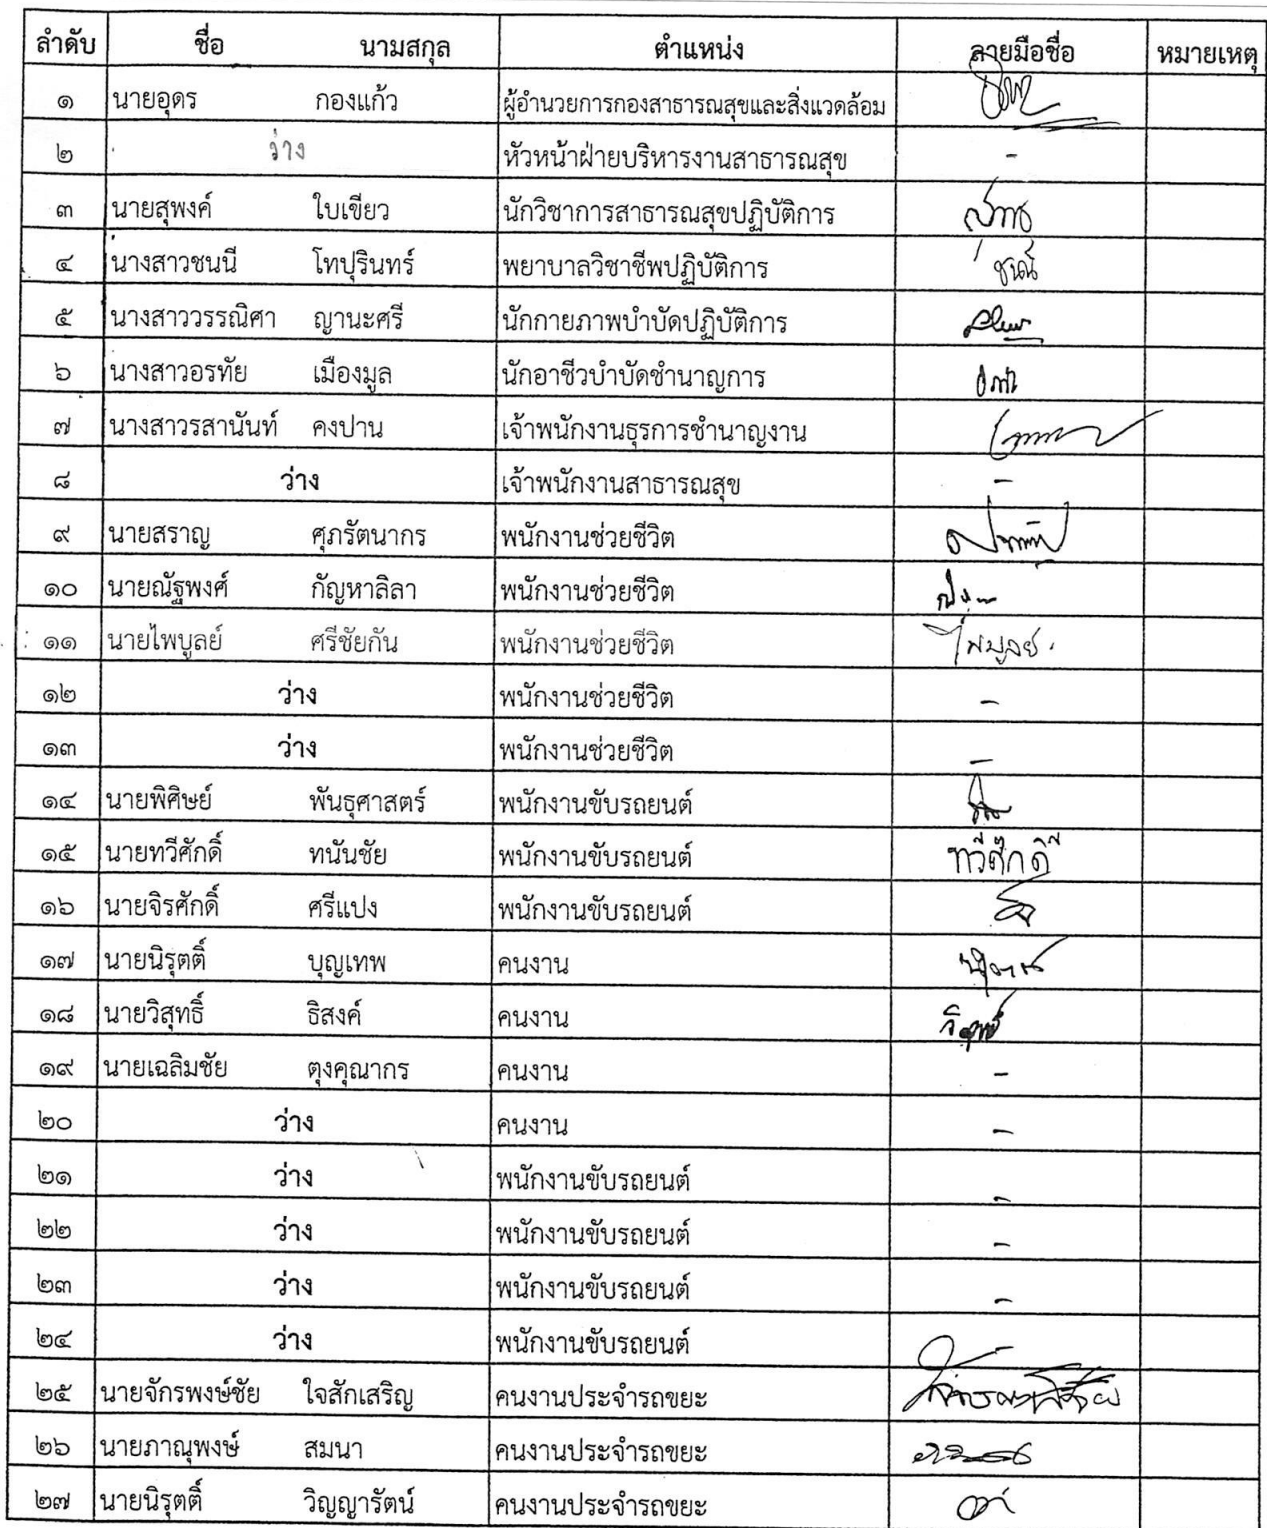 ลำดับ ชื่อ นามสกุล ตำแหน่ง ลายมือชื่อ หมายเหตุ
๑ นายอุดร กองแก้ว ผู้อำนวยการกองสาธารณสุขและสิ่งแวดล้อม
๒ ว่าง หัวหน้าฝ่ายบริหารงานสาธารณสุข -
๓ นายสุพงค์ ใบเขียว นักวิชาการสาธารณสุขปฏิบัติการ
๔ นางสาวชนนี โทปุรินทร์ พยาบาลวิชาชีพปฏิบัติการ
๕ นางสาววรรณิศา ญานะศรี นักกายภาพบำบัดปฏิบัติการ
๖ นางสาวอรทัย เมืองมูล นักอาชีวบำบัดชำนาญการ
๗ นางสาวรสานันท์ คงปาน เจ้าพนักงานธุรการชำนาญงาน
๘ ว่าง เจ้าพนักงานสาธารณสุข -
๙ นายสราญ ศุภรัตนากร พนักงานช่วยชีวิต
๑๐ นายณัฐพงศ์ กัญหาลิลา พนักงานช่วยชีวิต
๑๑ นายไพบูลย์ ศรีชัยกัน พนักงานช่วยชีวิต ไพบูลย์
๑๒ ว่าง พนักงานช่วยชีวิต -
๑๓ ว่าง พนักงานช่วยชีวิต -
๑๔ นายพิศิษย์ พันธุศาสตร์ พนักงานขับรถยนต์
๑๕ นายทวีศักดิ์ ทนันชัย พนักงานขับรถยนต์ ทวีศักดิ์
๑๖ นายจิรศักดิ์ ศรีแปง พนักงานขับรถยนต์
๑๗ นายนิรุตติ์ บุญเทพ คนงาน
๑๘ นายวิสุทธิ์ ธิสงค์ คนงาน
๑๙ นายเฉลิมชัย ตุงคุณากร คนงาน -
๒๐ ว่าง คนงาน -
๒๑ ว่าง พนักงานขับรถยนต์ -
๒๒ ว่าง พนักงานขับรถยนต์ -
๒๓ ว่าง พนักงานขับรถยนต์ -
๒๔ ว่าง พนักงานขับรถยนต์ -
๒๕ นายจักรพงษ์ชัย ใจสักเสริญ คนงานประจำรถขยะ
๒๖ นายภาณุพงษ์ สมนา คนงานประจำรถขยะ
๒๗ นายนิรุตติ์ วิญญารัตน์ คนงานประจำรถขยะ